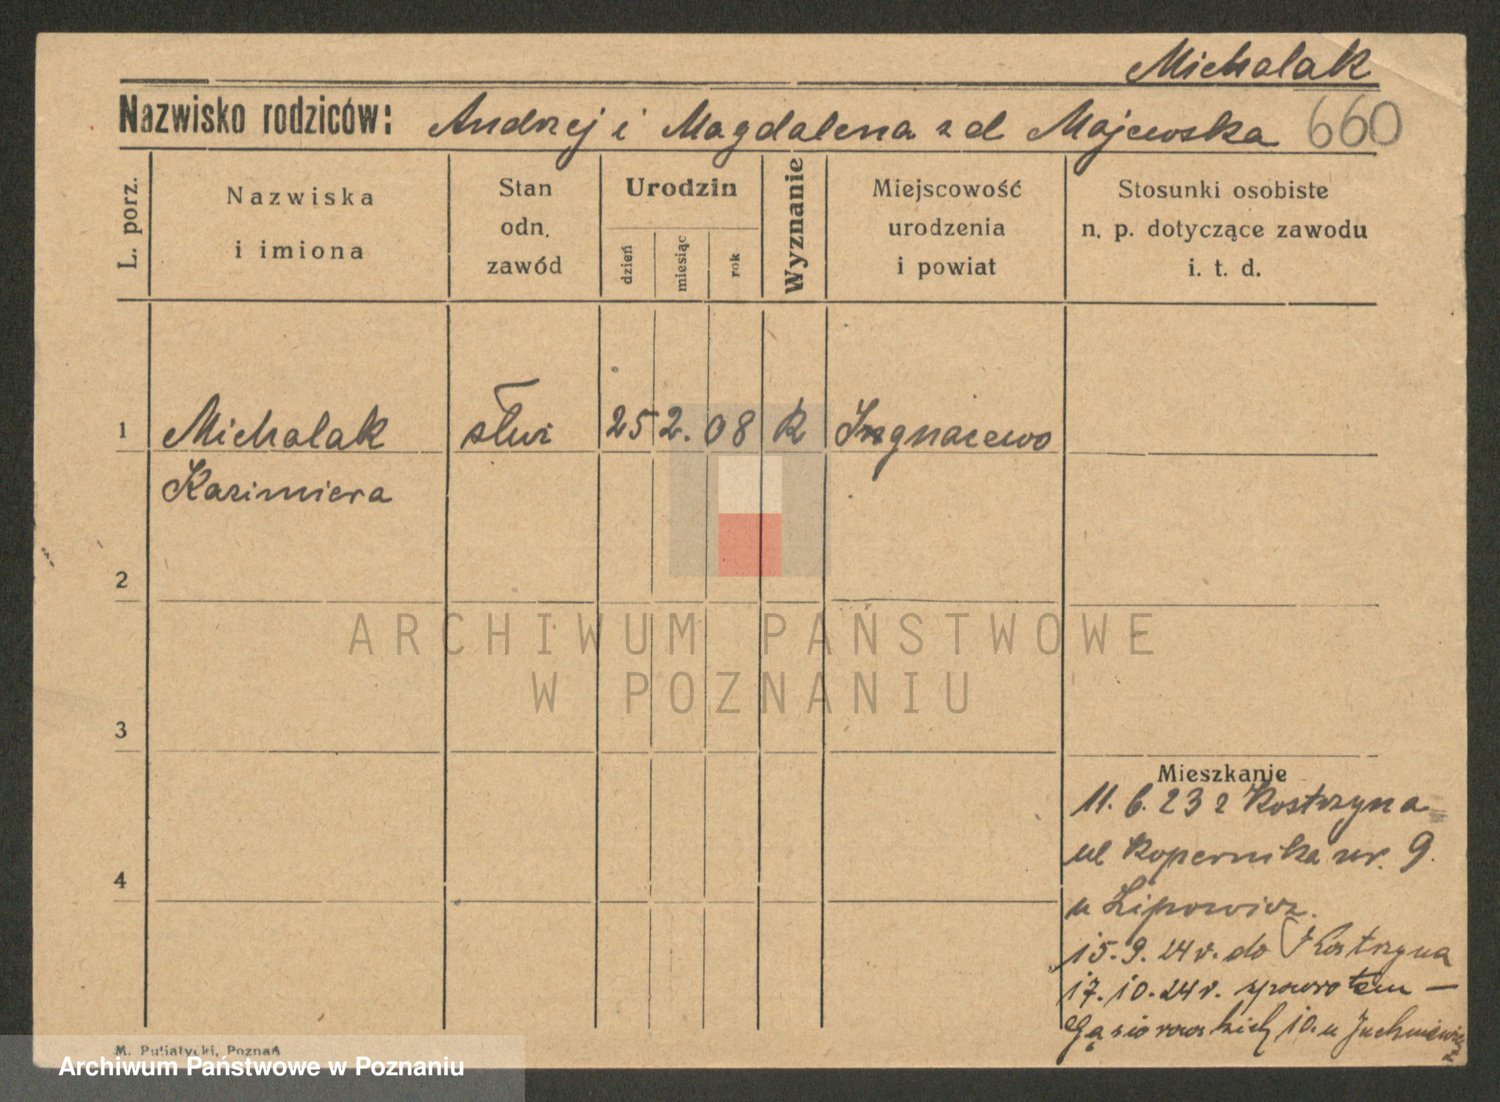 Michalak
Nazwisko rodziców: Andrzej i Magdalena z d Majewska 660
L. porz.
Nazwiska
i imiona
Stan
odn.
zawód
Urodzin
dzień
miesiąc
rok
Wyznanie
Miejscowość
urodzenia
i powiat
Stosunki osobiste
n. p. dotyczące zawodu
i. t. d.
1 Michalak służ 25 2. 08 R Ingnacewo
Kazimiera
2
ARCHIWUM PAŃSTWOWE
W POZNANIU
3
Mieszkanie
11. 6. 23 z Kostrzyna
ul Kopernika nr. 9.
4
u Lipowicz.
15. 9. 24 r. do Kostrzyna
17. 10. 24 r. spowrotem —
Gąsiorowskich 10. u
M. Putiatycki, Poznań
Archiwum Państwowe w Poznaniu